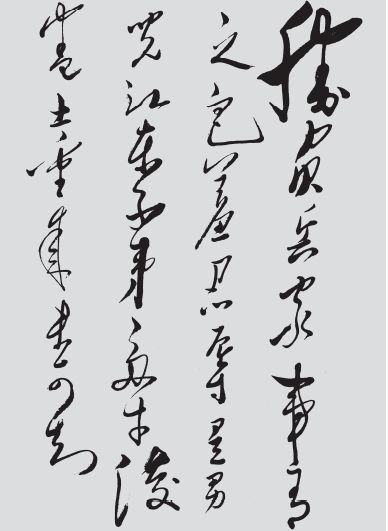 勝負兵家事有
之包羞忍辱是男
兒江東子弟多才俊
卷土重來未可知